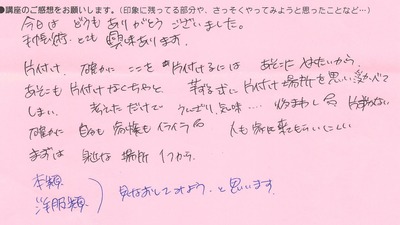 ●講座のご感想をお願いします。(印象に残ってる部分や、さっそくやってみようと思ったことなど…)
今日は どうも ありがとう ございました。
手帳術、とても 興味あります。
片付け、確かに ここを 片付けるには あそこに やりたいから、
あそこも 片付けなくちゃと 芋ずる式に 片付け場所を 思い浮かべて
しまい、 考えただけで うんざり気味…、
確かに 自分も 家族も イライラ 人も 家に来てもらいにくい
まずは 身近な 場所 1つから。
本類
洋服類 ) 見なおしてみよう、と 思います。